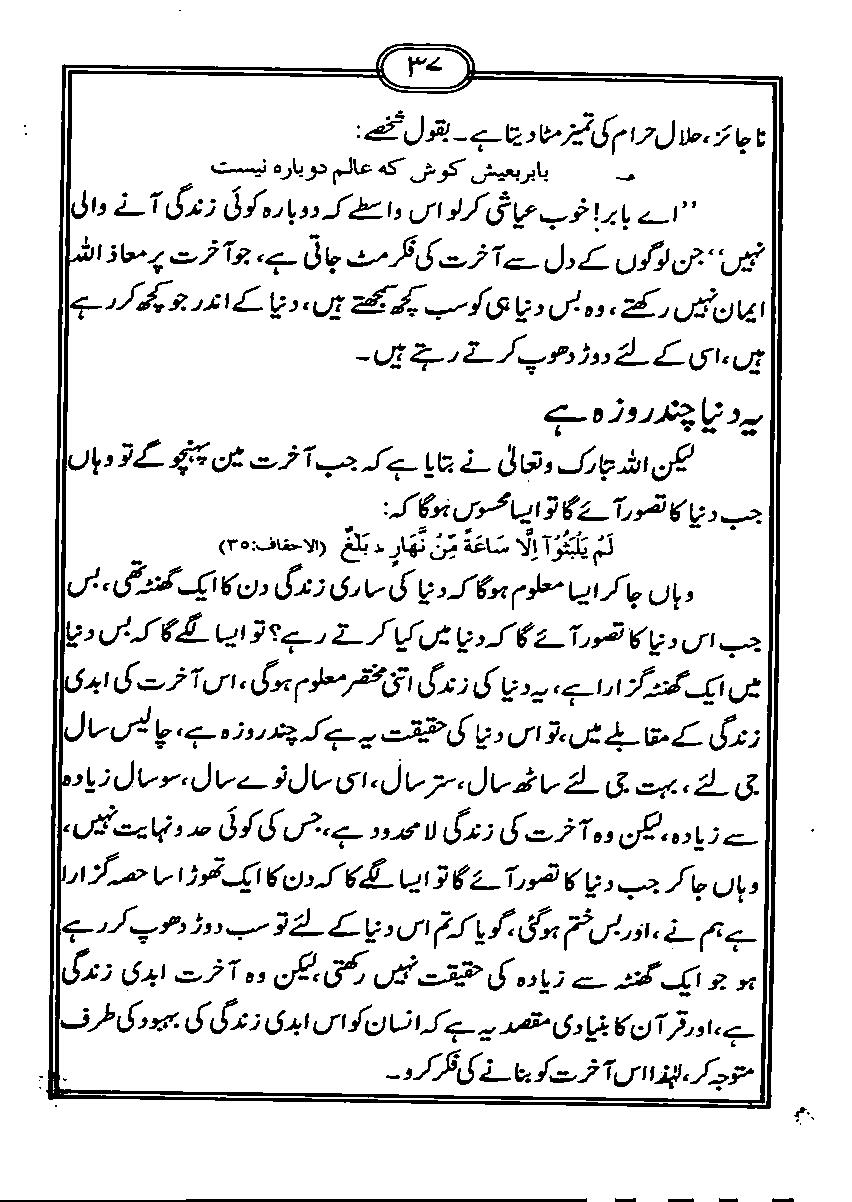 ۳۷
ناجائز، حلال حرام کی تمیز مٹا دیتا ہے۔ بقول شخصے:
؎ بابر بعیش کوش کہ عالم دوبارہ نیست
”اے بابر! خوب عیاشی کرلو اس واسطے کہ دوبارہ کوئی زندگی آنے والی
نہیں“ جن لوگوں کے دل سے آخرت کی فکر مٹ جاتی ہے، جو آخرت پر معاذ اللہ
ایمان نہیں رکھتے، وہ بس دنیا ہی کو سب کچھ سمجھتے ہیں، دنیا کے اندر جو کچھ کررہے
ہیں، اسی کے لئے دوڑ دھوپ کرتے رہتے ہیں۔
یہ دنیا چند روزہ ہے
لیکن اللہ تبارک وتعالیٰ نے بتایا ہے کہ جب آخرت مین پہنچو گے تو وہاں
جب دنیا کا تصور آئے گا تو ایسا محسوس ہوگا کہ:
لَمْ يَلْبَثُوْٓا اِلَّا سَاعَةً مِّنْ نَّهَارٍ ۔ بَلٰغٌ (الاحقاف:۳۵)
وہاں جاکر ایسا معلوم ہوگا کہ دنیا کی ساری زندگی دن کا ایک گھنٹہ تھی، بس
جب اس دنیا کا تصور آئے گا کہ دنیا میں کیا کرتے رہے؟ تو ایسا لگے گا کہ بس دنیا
میں ایک گھنٹہ گزارا ہے، یہ دنیا کی زندگی اتنی مختصر معلوم ہوگی، اس آخرت کی ابدی
زندگی کے مقابلے میں، تو اس دنیا کی حقیقت یہ ہے کہ چند روزہ ہے، چالیس سال
جی لئے، بہت جی لئے ساٹھ سال، ستر سال، اسی سال نوے سال، سو سال زیادہ
سے زیادہ، لیکن وہ آخرت کی زندگی لامحدود ہے، جس کی کوئی حد و نہایت نہیں،
وہاں جاکر جب دنیا کا تصور آئے گا تو ایسا لگے گا کہ دن کا ایک تھوڑا سا حصہ گزارا
ہے ہم نے، اور بس ختم ہوگئی، گویا کہ تم اس دنیا کے لئے تو سب دوڑ دھوپ کررہے
ہو جو ایک گھنٹہ سے زیادہ کی حقیقت نہیں رکھتی، لیکن وہ آخرت ابدی زندگی
ہے، اور قرآن کا بنیادی مقصد یہ ہے کہ انسان کو اس ابدی زندگی کی بہبود کی طرف
متوجہ کر، لہٰذا اس آخرت کو بنانے کی فکر کرو۔